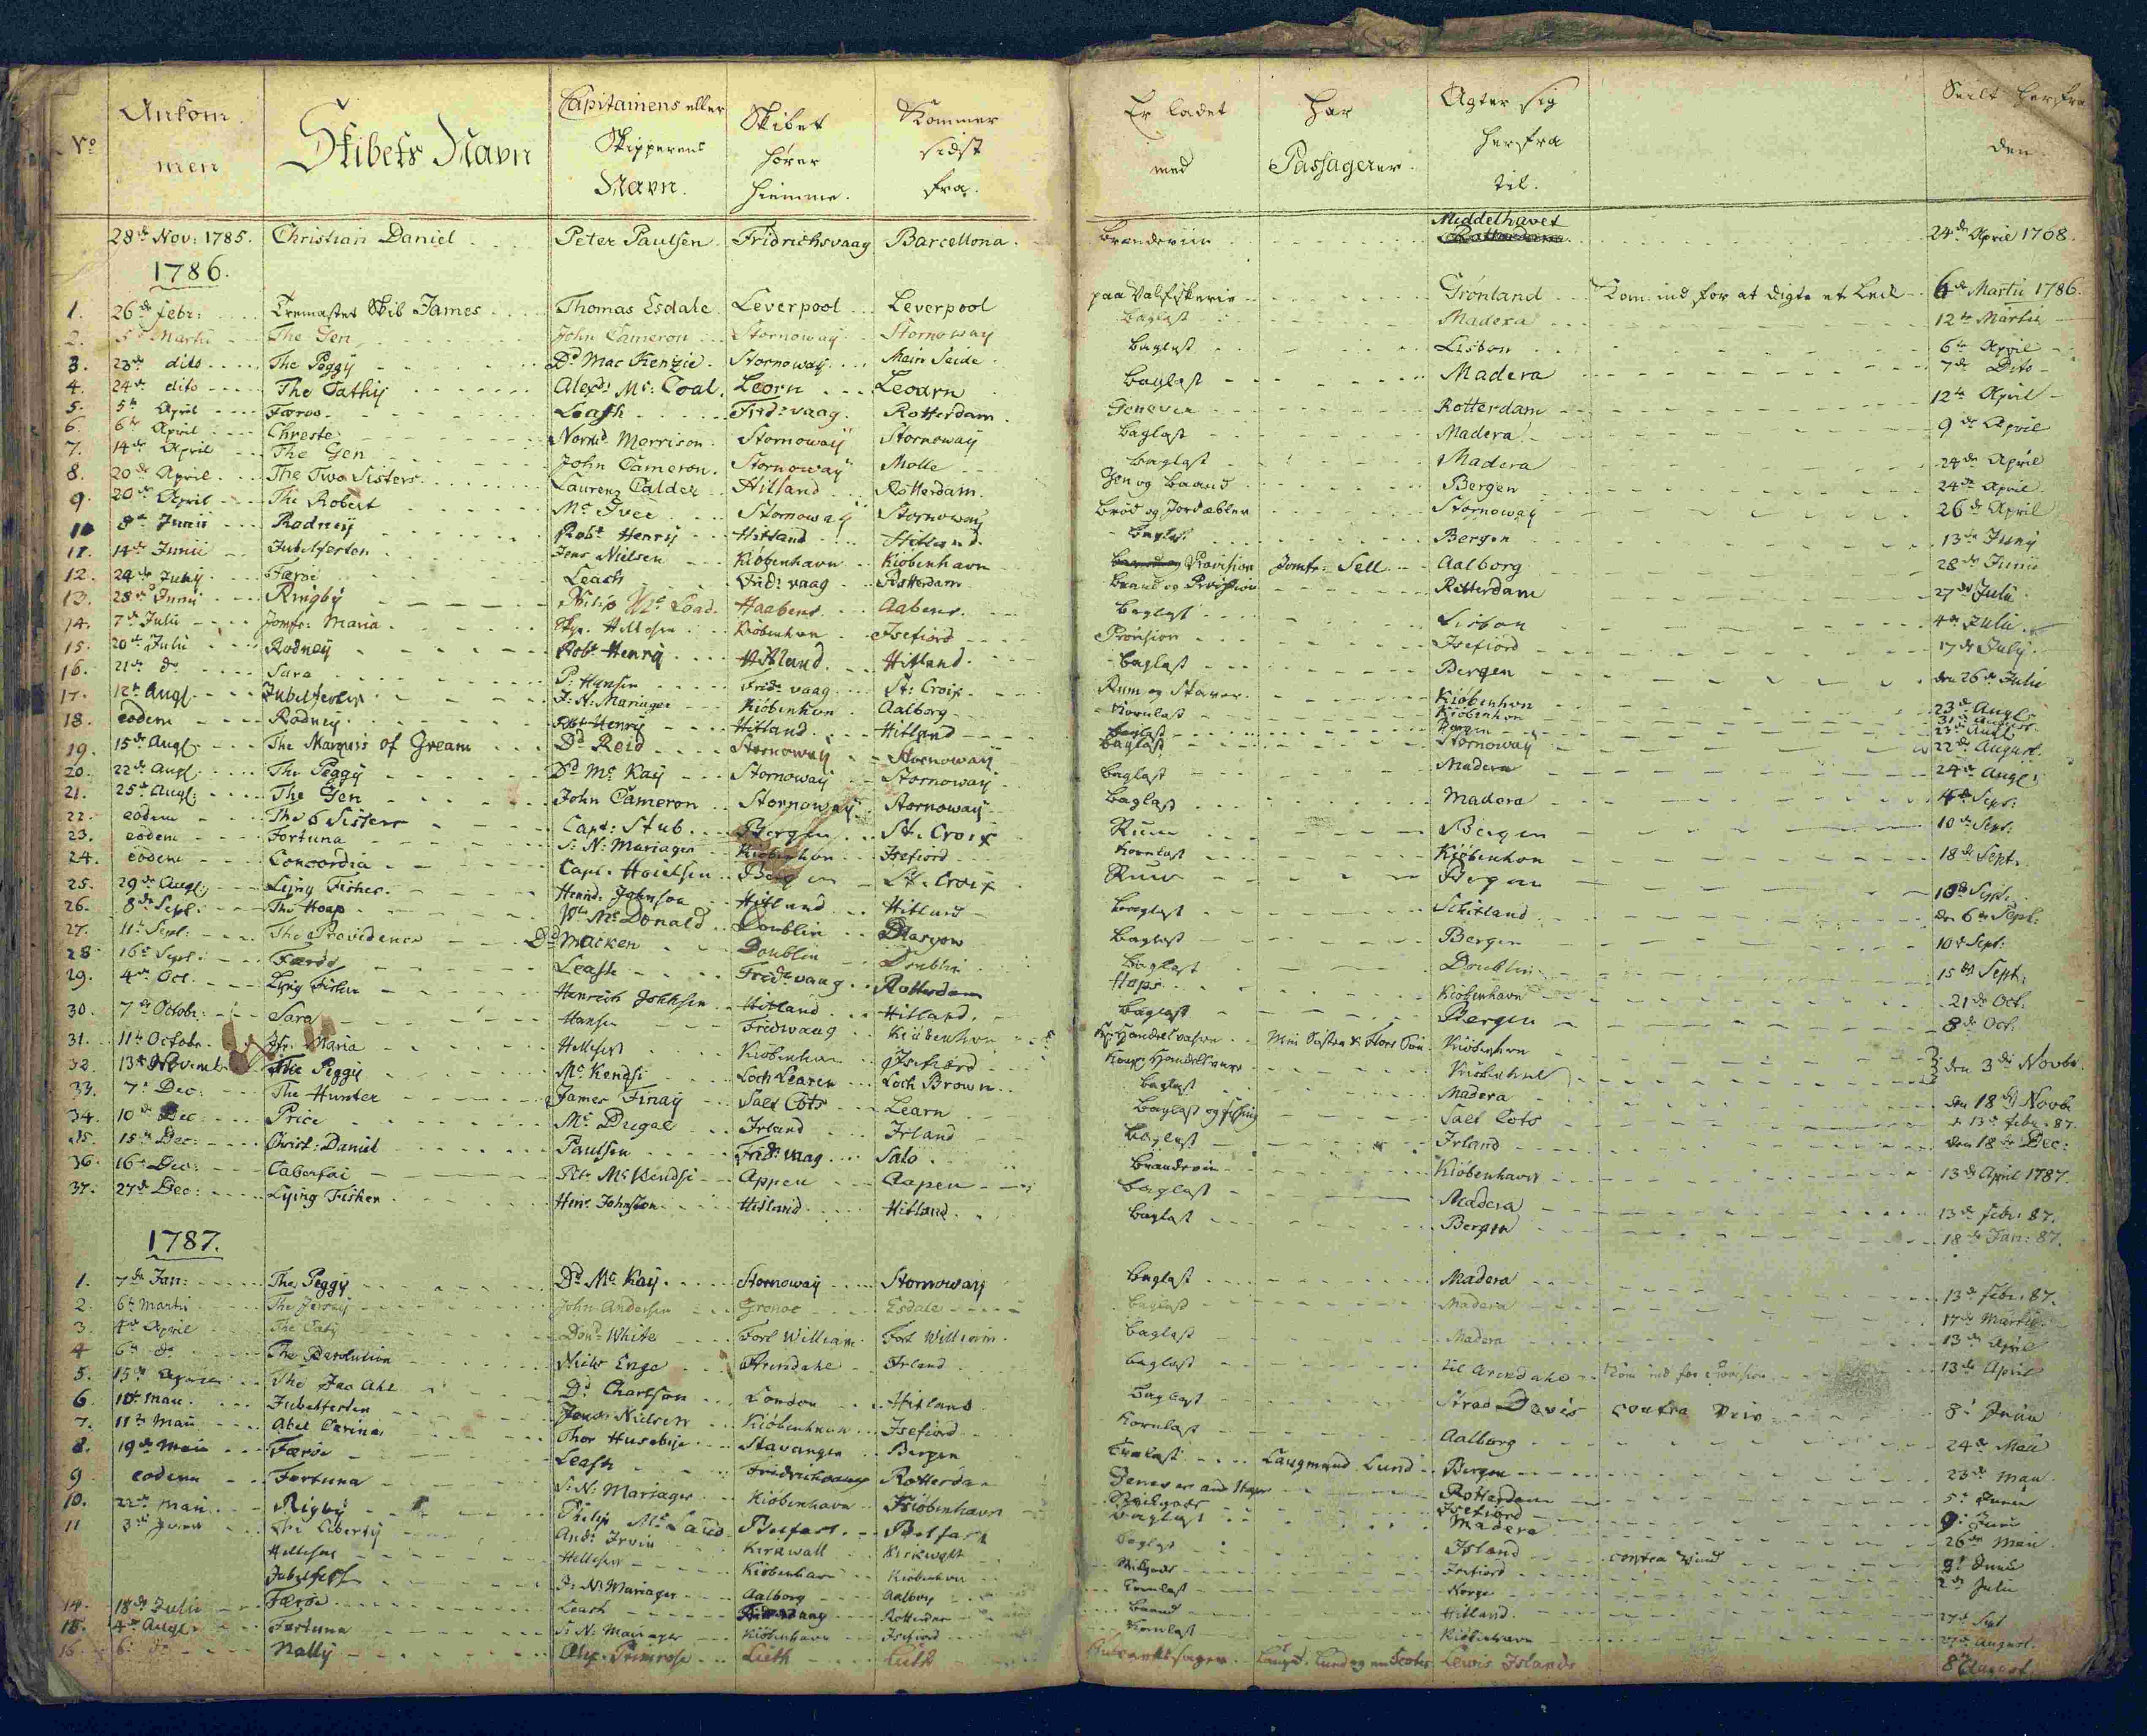 No Ankommen Skibets Navn Capitainens eller Skipperens Navn. Skibet hører hiemme. Kommer sidst fra. Er ladet med Har Passagerer. Agter sig herfra til. Seilt herfra den
28de Nov: 1785. Christian Daniel Peter Paulsen Fridrichsvaag Barcellona. Brændeviin Middelhavet 24de April 1768.
1786.
1. 26de febr: Tremastet Skib James Thomas Esdale Leverpool Leverpool paa Valfiskerie Grønland Kom ind for at digte et Leck 6de Martii 1786.
2. 5te Martii The Gen John Cameron Stornoway Stornoway Baglast Madera 12te Martii
3. 23de dito The Peggy Dd Mac Kenzie. Stornoway Main Seide Baglast Lisbon 6te April
4. 24de dito The Cathy Alexd: Mc: Coal. Leorn Leoarn Baglast Madera 7de Dito
5. 5te April Færøe Leash Frid: vaag. Rotterdam. Genever Rotterdam 12te April
6. 6te April Chreste Normd. Morrison Stornoway Stornoway Baglast Madera 9de April
7. 14de April The Gen John Cameron. Stornoway Molle Baglast Madera 24de April
8. 20de April. The Two Sisters Laurenz Calder Hitland Rotterdam. Gen og Baand Bergen 24de April.
9. 20de April The Robert Mc Iver Stornoway Stornoway Brød og Jordæbler Stornoway 26de April
10 8de Junii Rodney Robt Henry Hitland Hitland. Baglast Bergen 13de Juny
11. 14de Junii Jubelfesten Jens Nielsen Kiøbenhavn Kiøbenhavn Provision Jomfr: Sell Aalborg 28de Junii
12. 24de Juny Færøe Leash Frid: vaag Rotterdam Brand og Provision Rotterdam 27de Julii
13. 28de Junii Ringby Philip Mc Load. Haabens Aabens. Baglast Lisbon 4de Julii
14. 7de Julii Jomfr: Maria Skpr. Hellesen Kiøbenhvn Isefiord Provision Isefiord 17de July
15. 20de Julii Rodney Robt Henry Hitland. Hitland. Baglast Bergen den 26de Julii
16. 21de do Sara P: Hansen Frid: vaag St: Croix Rum og Staver Kiøbenhvn 23de Augl.
17. 12te Augl. Jubelfesten J: N: Mariager Kiøbenhvn Aalborg Kornlast Kiøbenhvn 31te August.
18. eodem Rodney. Robt Henry Hitland. Hitland Baglast Bergen 23de Augl
19. 15de Augl. The Marquis of Gream Dd Reid Stornoway Stornoway Baglast Stornoway 22de August.
20. 22de Augl. The Peggy Dd Mc Kay Stornoway Stornoway Baglast Madera 24de Augl:
21. 25de Augl: The Gen John Cameron Stornoway Stornoway Baglast Madera 4de Sept:
22. eodem The 6 Sisters Capt: Stub. Bergen St. Croix Rum Bergen 10de Sept.
23. eodem Fortuna S: N: Mariager Kiøbenhvn Isefiord Kornlast Kiøbenhvn 18de Sept.
24. eodem Concordia Capt. Hoielsen Bergen St. Croix Rum Bergen 10de Sept.
25. 29de Augl. Lijng Fisher. Henrd. Johnson Hitland Hitland Baglast Schitland den 6te Sept:
26. 8de Sept: The Hoap Mc Donald Doublin Glasgow Baglast Bergen 10de Sept:
27. 11te Sept: The Providence Dd Macken Doublin Doublin Baglast Doublin 15de Sept:
28 16de Sept: Færøe Leash Frid: vaag Rotterdam Haps Kiøbenhavn 21de Oct.
29. 4de Oct. Lijng Fisher Henrich Johnsen Hitland. Hitland. Baglast Bergen 8de Oct.
30. 7de Octobr: Sara Hansen Fredsvaag Kiøbenhvn Kgl Handelsvahre Kiøbenhvn
31. 11te Octobr. Jfr. Maria Hellesen Kiøbenhvn Isefiord Kong: Handelsvare Kiøbenhvn den 3de Novbr.
32. 13de Novembr The Peggy Mc Kendsi Loch Learen Loch Brown Baglast Madera den 18de Novbr
33. 7de Dec: The Hunter James Finay Salt Cots Learn Baglast og fisking Salt Cots d 13de febr: 87.
34. 10de Dec Price Mc Dugal Irland Irland Baglast Irland den 18de Dec:
35. 15de Dec: Christ: Daniel Paulsen Frid: vaag Salo Brændeviin Kiøbenhavn 13de April 1787.
36. 16de Dec: Caberfai Mc Kendsi Appen Aapen Baglast Madera 13de febr: 87.
37. 27de Dec: Lijing Fisher Henr. Johnson Hitland Hitland. Baglast Bergen 18de Jan: 87.
1787.
1. 7de Jan: The Peggy Dd Mc Kay. Stornoway Stornoway Baglast Madera 13de febr. 87.
2. 6te Martii The Jersey John Andersen Gronoc Esdale Baglast Madera 17de Martii
3. 4de April The Caty Dond. White Fort William Fort William. Baglast Madera 13de April
4 6te do The Resolution Niels Enge Arendahl Irland Baglast til Arendahl Kom ind for Provision 13de April
5. 15de April The Jac Ahl Dd Charlson London Hitland Baglast Strad Davis contra Vein 8de Junii
6 10de Maii Jubelfesten Jens Nielsen Kiøbenhavn Isefiord Kornlast Aalborg 24de Maii
7. 11te Maii Abel Carina Thor Husebye Stavanger Bergen Trælast Laugmand Lund Bergen 23de Maii
8. 19de Maii Færøe Leash Fridrichsvaag Rotterdam Genever and Haps Rotterdam 5te Junii
9 eodem Fortuna S: N: Mariager Kiøbenhavn Kiøbenhavn Isefiord 9de Junii
10. 22de Maii Rigby Philip Mc Laud Belfast. Belfast Baglast Madera 26de Maii
11 3de Junii The Liberty Andr Irvin Kirkwall Kirkwall Baglast Island contra Vind
Hellesen Hellesen Kiøbenhavn Kiøbenhvn Isefiord
Jubelfest J: N: Mariager Aalborg Aalborg Kornlast Norge 2de Julii
14. 18de Julii Færøe Leash Rotterdam Baand Hitland. 27de Sept
15. 4de Augl. Fortuna S: N: Mariager Kiøbenhavn Isefiord Kornlast Kiøbenhavn August.
16 6te do Nally Alex. Primrose Lieth Lieth Lewis Islands 8de August